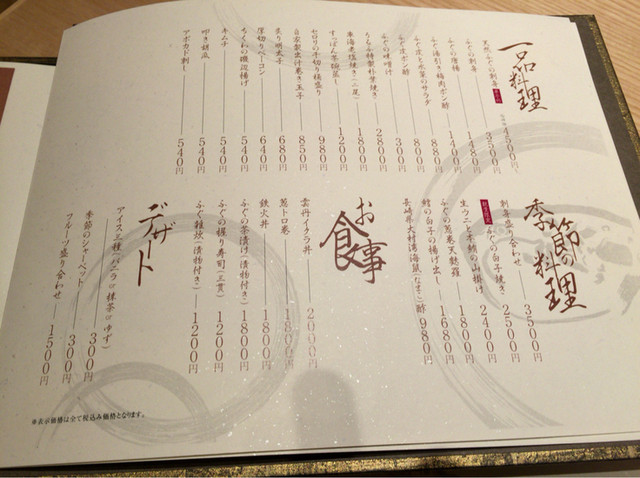 一品料理
天然ふぐの刺身
4500円
3500円
ふぐの刺身 1480円
ふぐの唐揚 1480円
ふぐ湯引き梅肉ポン酢 880円
ふぐ皮と水菜のサラダ 880円
ふぐ皮ポン酢 880円
ふぐの味噌汁 800円
うちら特製朴葉焼き 2800円
車海老塩焼き(二尾) 1800円
すっぽん茶碗蒸し 1200円
セロリの千切り桶盛り 980円
自家製出汁巻き玉子 850円
炙り明太子 680円
厚切りベーコン 640円
ちくわの磯辺揚げ 540円
キムチ 540円
叩き胡瓜 540円
アボカド刺し 540円
季節の料理
刺身盛り合わせ 3500円
ふぐの白子焼き 2500円
生ウニと千桃の山掛け 2400円
ふぐの葱巻天麩羅 1800円
鱈の白子の揚げ出し 1680円
長崎県大村湾海鼠(なまこ)酢 980円
お食事
雲丹イクラ丼 2000円
葱トロ巻 1800円
鉄火丼 1800円
ふぐの茶漬け(漬物付き) 1800円
ふぐの握り寿司(三貫) 1200円
ふぐ雑炊(漬物付き) 1200円
デザート
アイス三種(バニラor抹茶orゆず) 300円
季節のシャーベット 300円
フルーツ盛り合わせ 1500円
※表示価格は全て税込み価格となります。